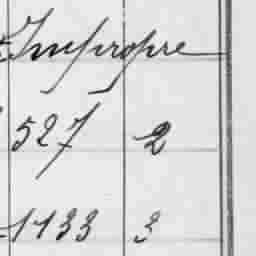 Impropre
527 2
1133 3